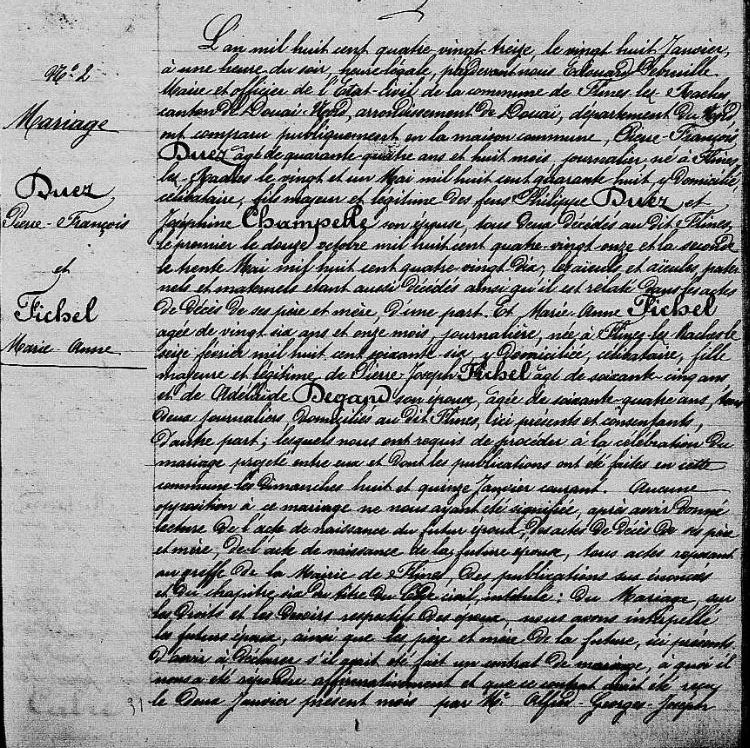 N° 2
Mariage
Duez
Pierre-François
et
Fichel
Marie Anne
L'an mil huit cent quatre vingt treize, le vingt huit Janvier,
à une heure du soir, heure légale, pardevant nous Edouard
Maire et officier de l'Etat-Civil de la commune de Flines lez Raches
canton de Douai-Nord, arrondissement de Douai, département du Nord
ont comparu publiquement en la maison commune, Pierre-François
Duez âgé de quarante-quatre ans et huit mois, journalier, né à Flines
lez Raches le vingt et un Mai mil huit cent quarante huit, y domicilié,
célibataire, fils majeur et légitime des feus Philippe Duez et
Joséphine Champelle son épouse, tous deux décédés au dit Flines,
le premier le douze octobre mil huit cent quatre-vingt onze et la seconde
le trente Mai mil huit cent quatre vingt dix; les aïeuls et aïeules, pater
nels et maternels étant aussi décédés ainsi qu'il est relaté dans les actes
de décès de ses père et mère, d'une part. Et Marie-Anne Fichel
agée de vingt six ans et onze mois, journalière, née à Flines-lez Raches le
seize février mil huit cent soixante six, y domiciliée, célibataire, fille
majeure et légitime, de Pierre Joseph Fichel âgé de soixante-cinq ans
et de Adélaïde Degand son épouse, âgée de soixante-quatre ans, tous
deux journaliers, domiciliés au dit Flines, ici présents et consentants,
d'autre part; lesquels nous ont requis de procéder à la célébration du
mariage projeté entre eux et dont les publications ont été faites en cette
commune les dimanches huit et quinze Janvier courant. Aucune
opposition à ce mariage ne nous ayant été signifiée, après avoir donné
lecture de l'acte de naissance du futur époux, des actes de décès de ses père
et mère, de l'acte de naissance de la future épouse, tous actes reposant
au greffe de la Mairie de Flines, des publications sus énoncés
et du chapitre six du titre du Code civil, intitulé: du Mariage, sur
les droits et les devoirs respectifs des époux, nous avons interpellé
les futurs époux, ainsi que les père et mère de la future, ici présents,
d'avoir à déclarer s'il avait été fait un contrat de mariage, à quoi il
nous a été répondu affirmativement et que ce contrat avait été reçu
31 le deux Janvier présent mois par M° Alfred-Georges-Joseph